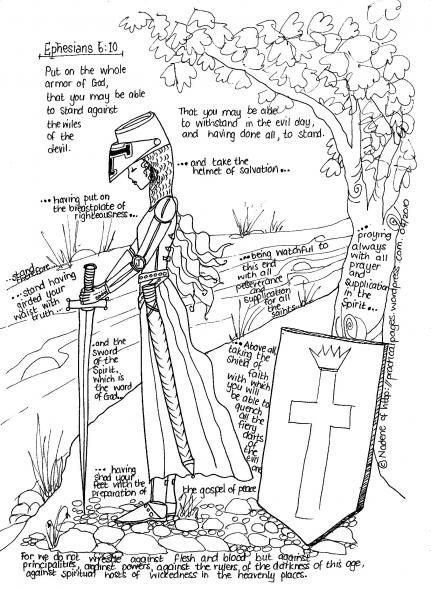 Ephesians 6:10
Put on the whole
armor of God,
that you may be able
to stand against
the wiles
of the
devil.
That you may be able
to withstand in the evil day,
and having done all, to stand.
...and take the
helmet of salvation...
...having put on
the breastplate of
righteousness...
stand
therefore
...stand having
girded your
waist with
truth...
...being watchful to
this end
with all
perseverance
and
supplication
for all
the saints
...praying
always
with all
prayer
and
supplication
in the
Spirit...
...and the
sword
of the
Spirit,
which is
the word
of God...
...Above all
taking the
shield of
faith
with which
you will
be able to
quench
all the
fiery
darts
of the
evil
one
...having
shod your
feet with the
preparation of
the gospel of peace
For we do not wrestle against flesh and blood but against
principalities, against powers, against the rulers of the darkness of this age,
against spiritual hosts of wickedness in the heavenly places.
© Nadene of http://practicalpages.wordpress.com